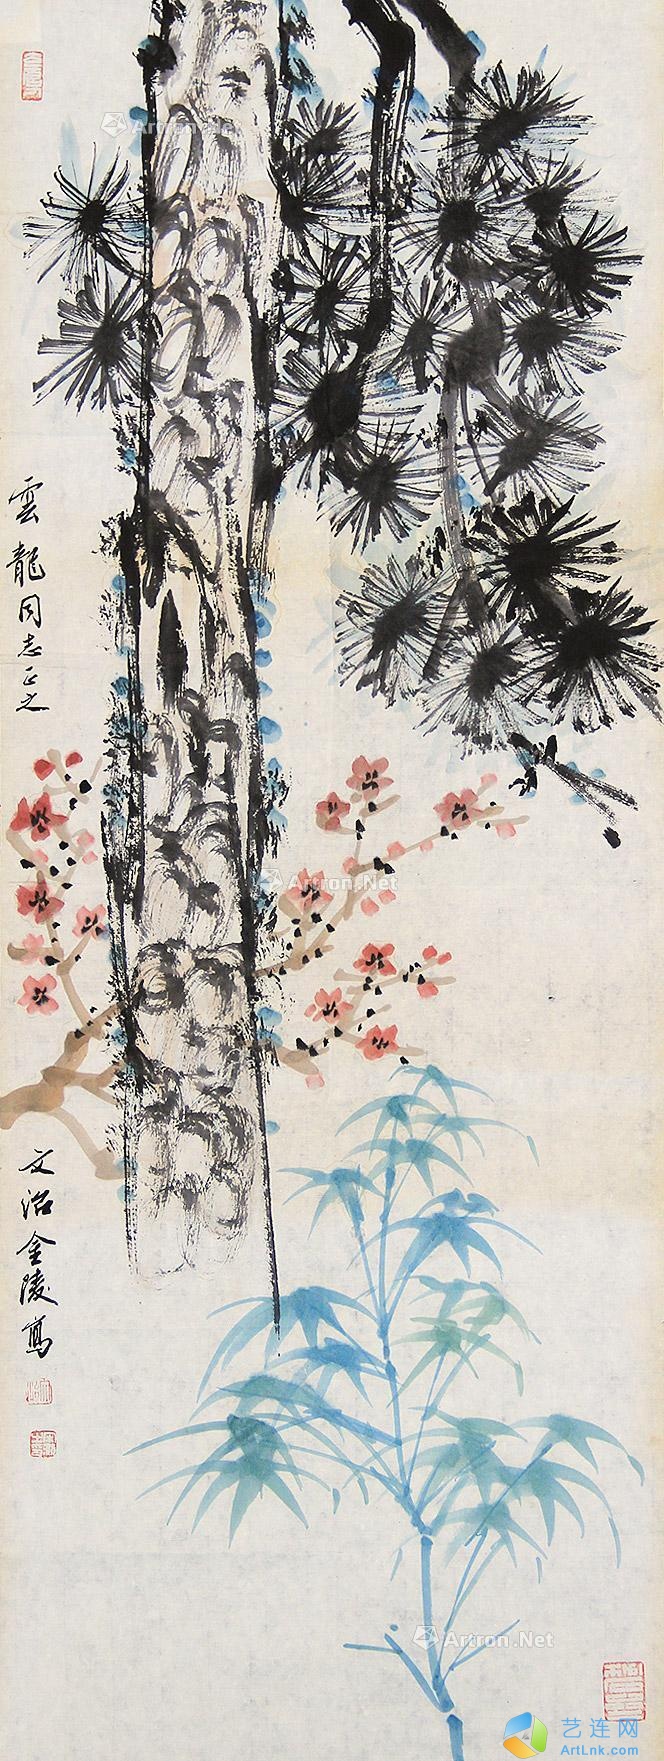 雲龍同志正之
文治金陵寫
Artron.Net
Artron.Net
Artron.Net
艺连网
ArtLnk.com